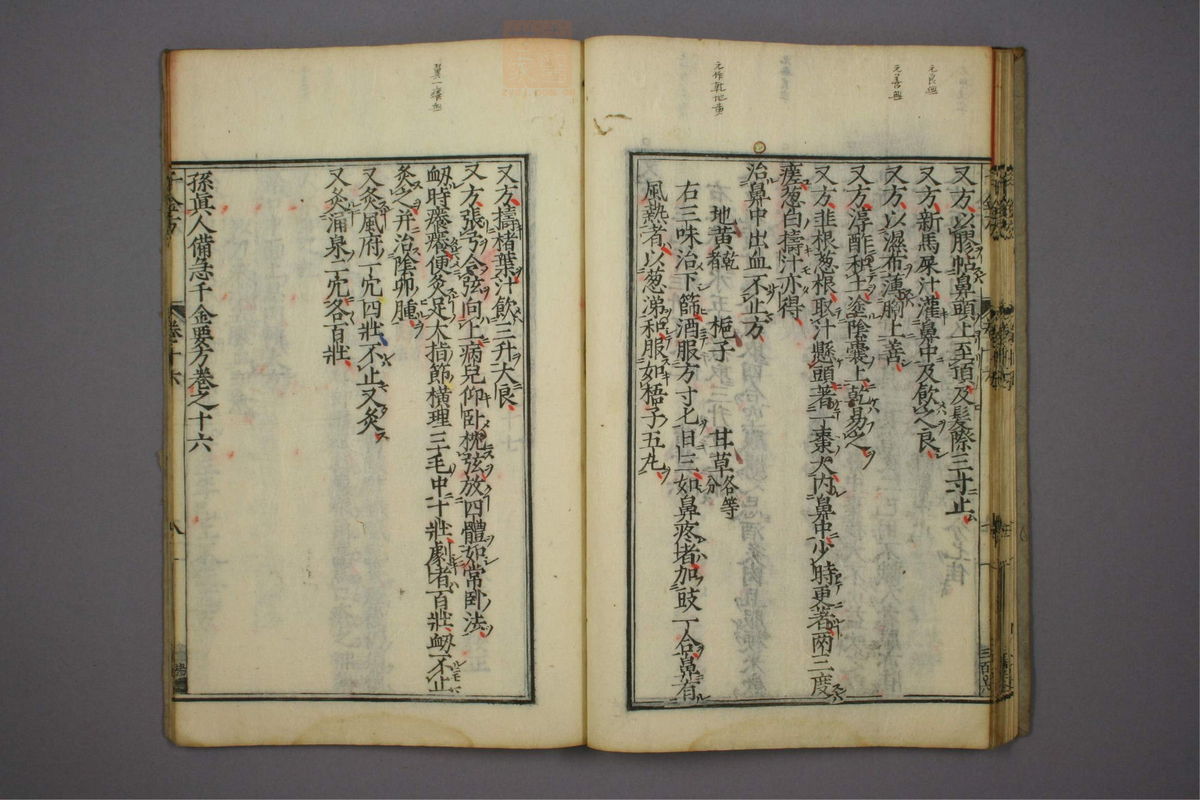 元良無
元善無
元作乾地黄
又方以膠帖鼻頭上至頂及髮際三寸止
又方新馬屎汁灌鼻中及飲之良
又方以濕布薄胸上善
又方淳酢和土塗陰囊上乾易之
又方韭根葱根取汁懸頭著一棗大内鼻中少時更著兩三度
瘥葱白擣汁亦得
治鼻中出血不止方
地黄乾者 梔子 甘草各等分
右三味治下篩酒服方寸匕日三如鼻疼者加豉一合鼻有
風熱者以葱涕和服如梧子五丸
又方擣楮葉汁飲三升大良
又方張弓令弦向上病兒仰卧枕弦放四體如常卧法
衂時癢癢便灸足大指節橫理三毛中十壯劇者百壯衂不止
灸之并治陰卵腫
又灸風府一穴四壯不止又灸
又灸涌泉二穴各百壯
孫真人備急千金要方卷之十六
千金方 卷十六